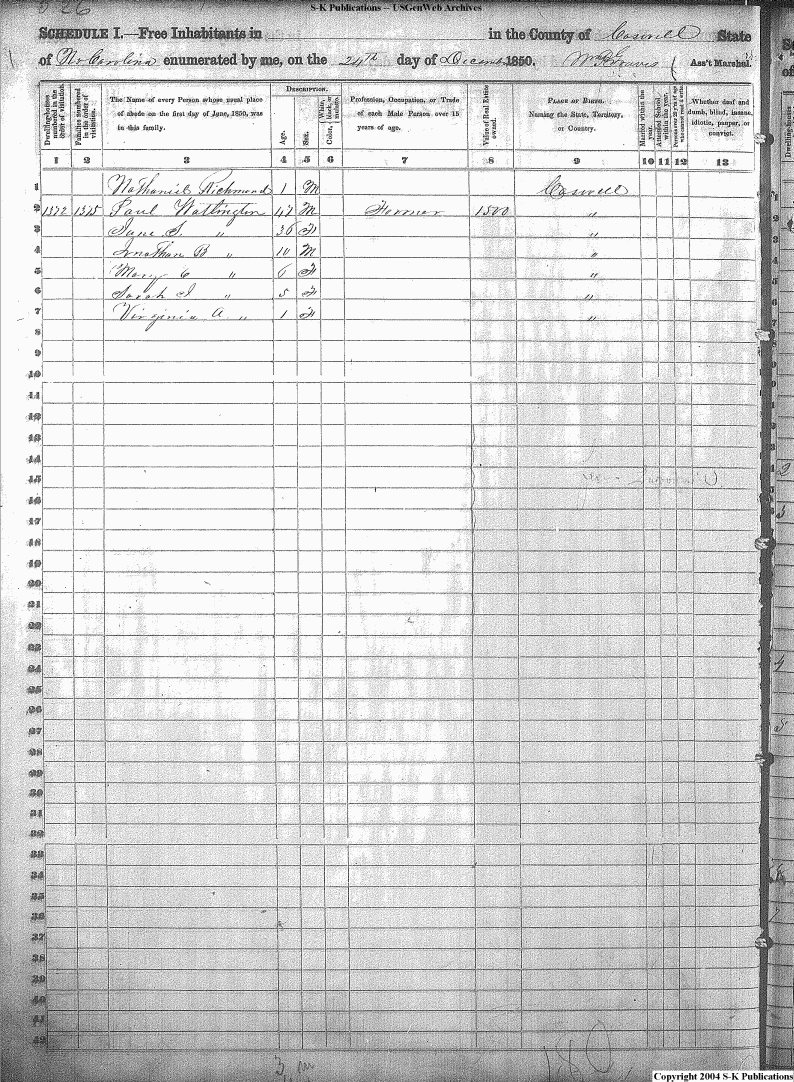 S-K Publications -- USGenWeb Archives
326
SCHEDULE I.—Free Inhabitants in in the County of Caswell State
of No Carolina enumerated by me, on the 24th day of Decemb 1850. Wm P Graves Ass't Marshal.
Dwelling-houses numbered in the order of visitation.
Families numbered in the order of visitation.
The Name of every Person whose usual place of abode on the first day of June, 1850, was in this family.
DESCRIPTION.
Age.
Sex.
White, black, or mulatto.
Color,
Profession, Occupation, or Trade of each Male Person over 15 years of age.
Value of Real Estate owned.
PLACE OF BIRTH.
Naming the State, Territory, or Country.
Married within the year.
Attended School within the year.
Persons over 20 y'rs of age who cannot read & write.
Whether deaf and dumb, blind, insane, idiotic, pauper, or convict.
1 2 3 4 5 6 7 8 9 10 11 12 13
1 Nathaniel Richmond 1 M Caswell 1
2 1372 1375 Paul Watlington 47 M Farmer 1500 " 2
3 Jane S " 36 F " 3
4 Jonathan B " 10 M " 4
5 Mary C " 6 F " 5
6 Sarah J " 5 F " 6
7 Virginia A " 1 F " 7
8
9
10
11
12
13
14
15
16
17
18
19
20
21
22
23
24
25
26
27
28
29
30
31
32
33
34
35
36
37
38
39
40
41
42
3 m
180
Copyright 2004 S-K Publications